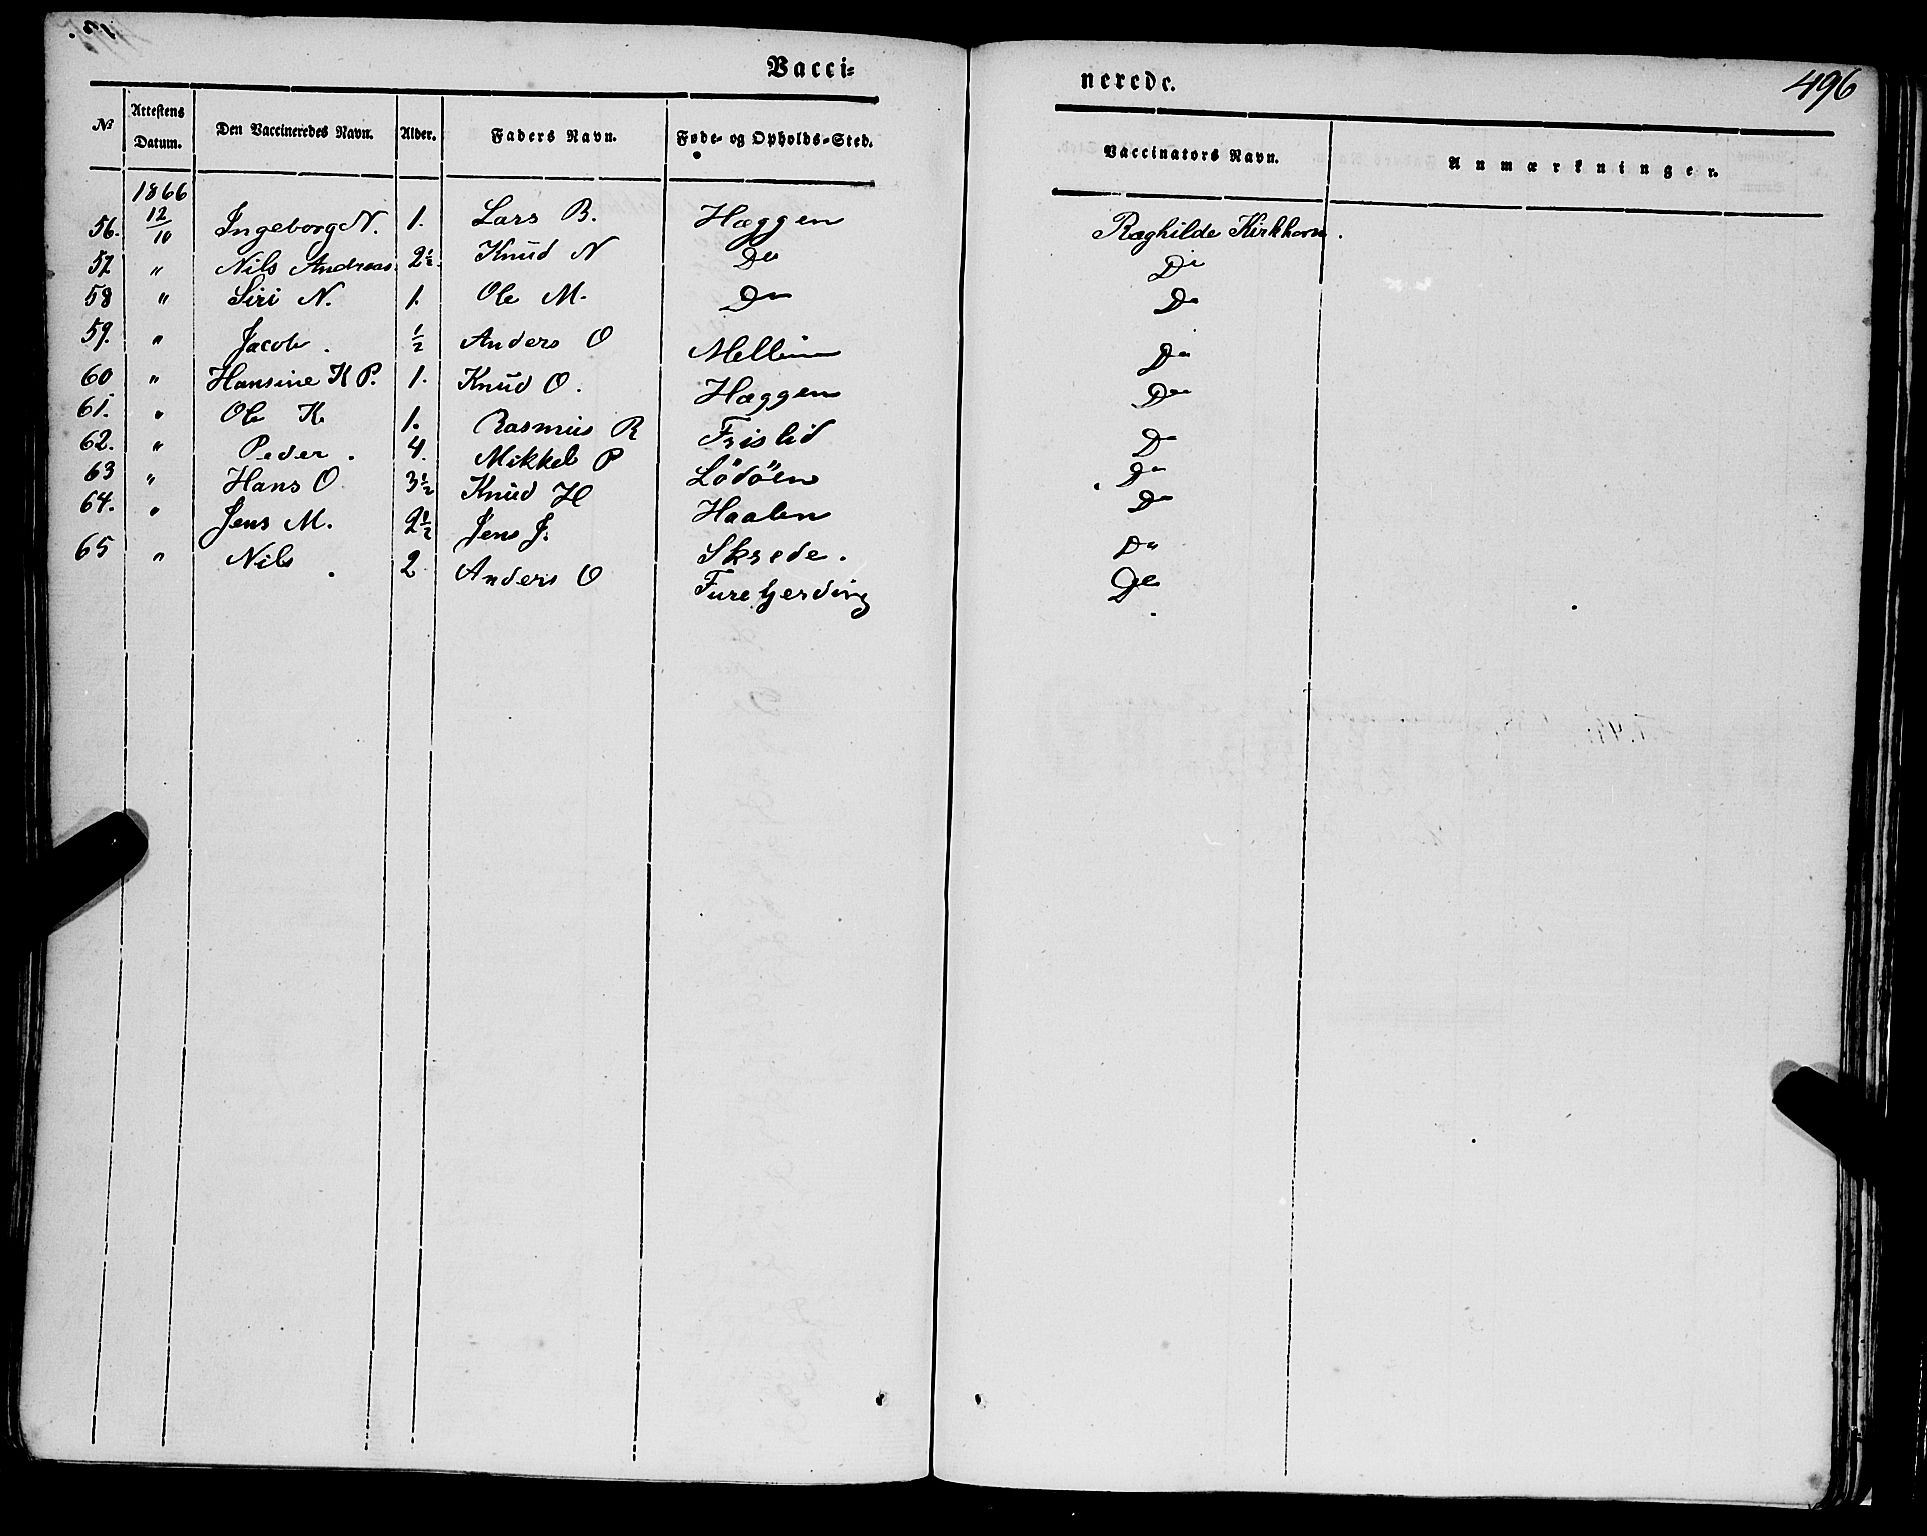 Vacci=
nerede.
496
№ Attestens Datum. Den Vaccineredes Navn. Alder. Faders Navn. Føde- og Opholds-Sted. Vaccinators Navn. Anmærkninger.
1866
56. 12/10 Ingeborg N. 1. Lars B. Hæggen Raghilde Kirkhorn.
57 " Nils Andreas 2½ Knud N Do Do
58 " Siri N. 1. Ole M. Do Do
59. " Jacob. ½ Anders O Do
60 " Hansine K P. 1. Knud O. Hæggen Do
61. " Ole K 1. Rasmus R Frislid Do
62. " Peder. 4. Mikkel P Lödöen Do
63 " Hans O 3½ Knud H Haalen Do
64. " Jens M. 2½ Jens J. Skrede. Do
65 " Nils. 2 Anders O Do